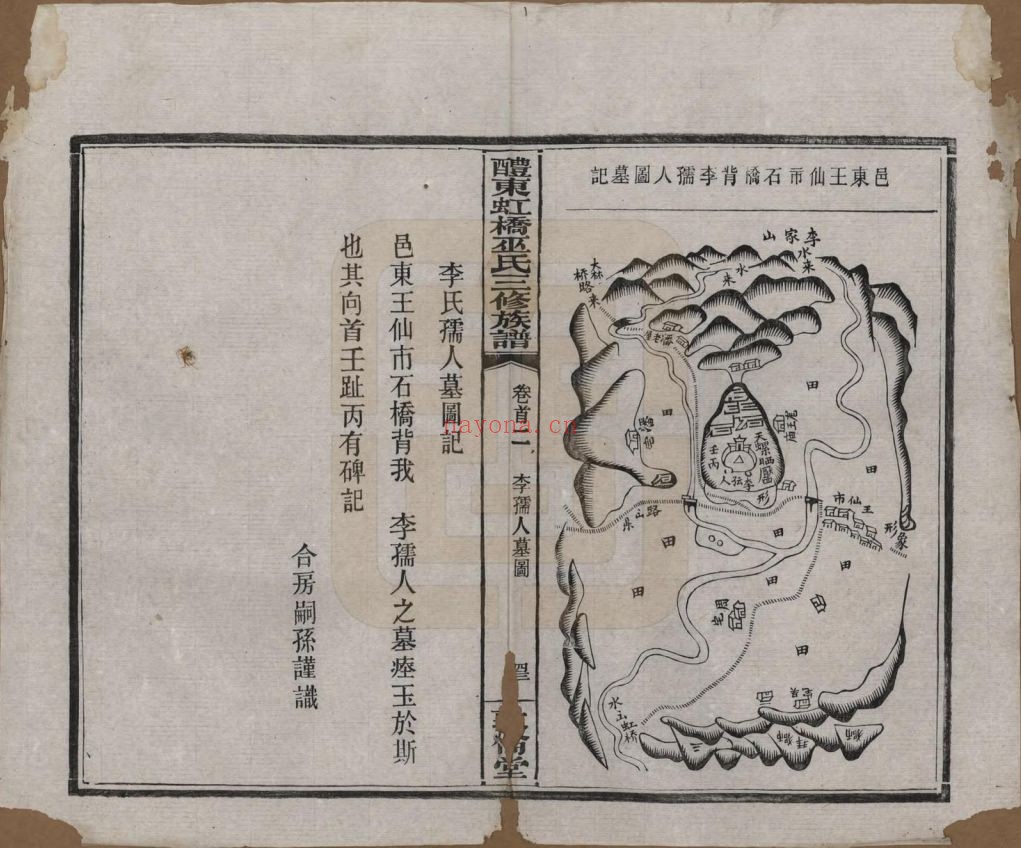 邑東王仙市石橋背李孺人圖墓記
李家山
水来
水来
大林
桥路来
潘老屋
田
田
田
田
田
田
田
田
田
天螺晒靨
形
李孺人
壬
丙
王仙市
象形
路
山
水
虹桥
醴東虹橋巫氏三修族譜
卷首二
李孺人墓圖
堂
李氏孺人墓圖記
邑東王仙市石橋背我 李孺人之墓瘞玉於斯
也其向首壬趾丙有碑記
合房嗣孫謹識
nayona.cn